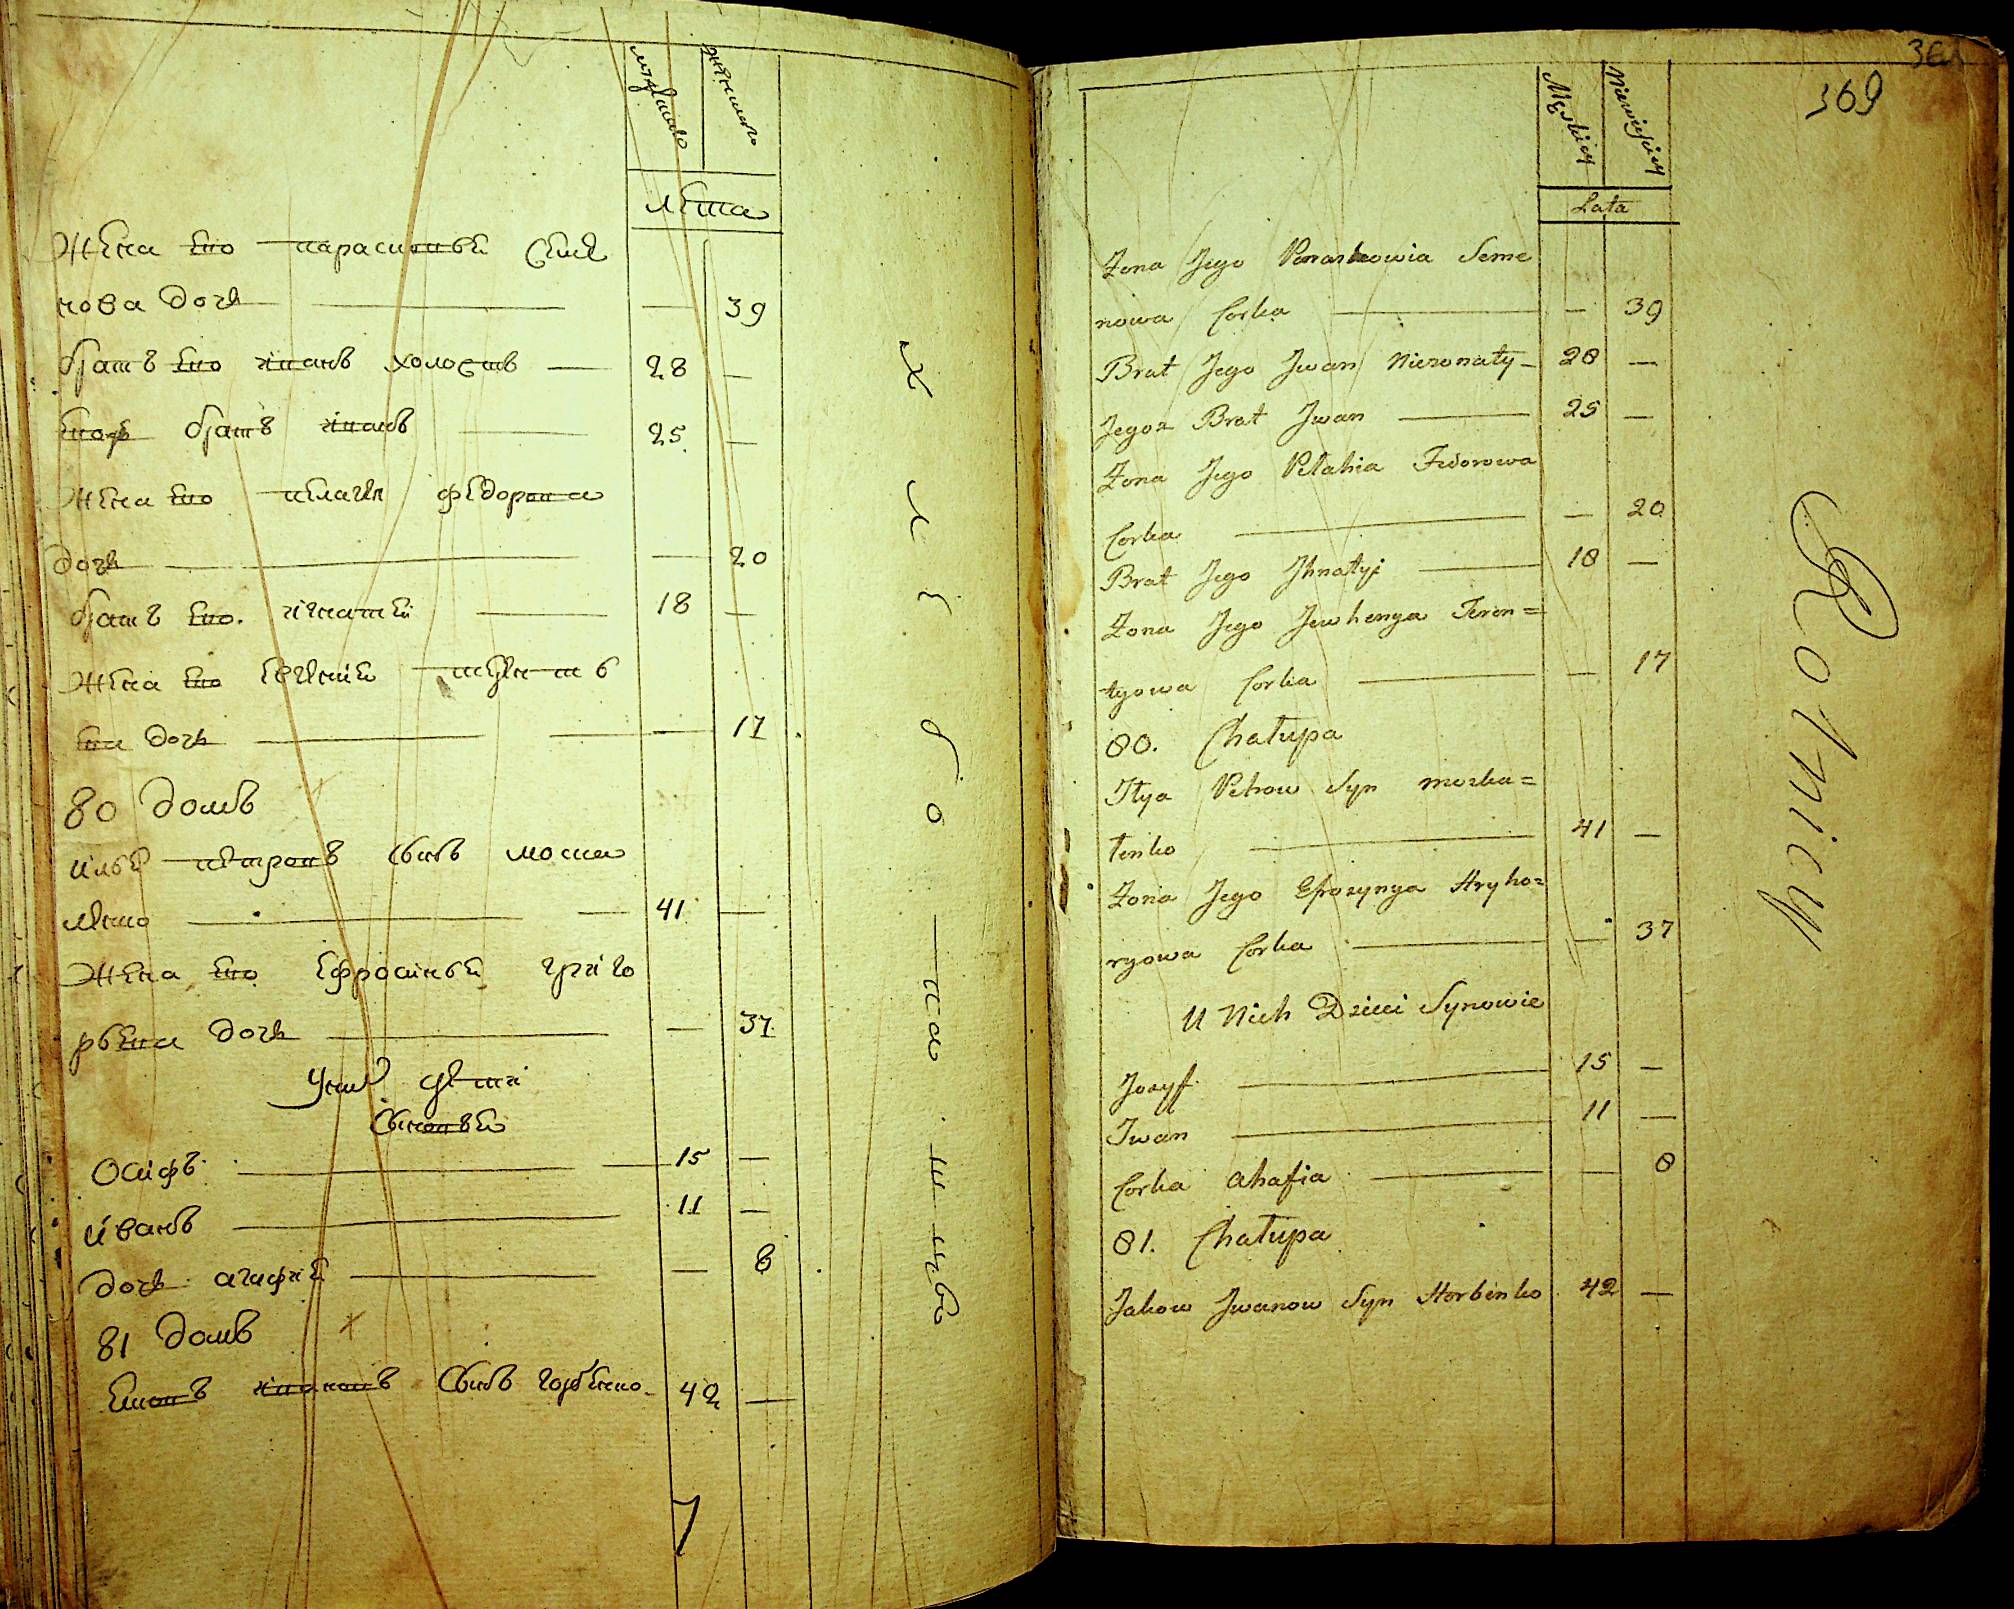 мужеска
женска
лѣта
Жена его парасковія Семе
нова дочь 39
братъ его иванъ холостъ 28
егожъ братъ иванъ 25
Жена его пелагія федорова
дочь 20
братъ его игнатій 18
Жена его евгенія терентъ
ева дочь 17
80 домъ
илья петровъ сынъ моска
ленко 41
Жена его ефросинья григо
рьева дочь 37
У них дети
Сыновья
Осифъ 15
иванъ 11
дочь агафия 8
81 домъ
иванов сынъ горбенко 42
хлібопашцы
369
Męskiey
Niewieskiey
Lata
Zona Jego Paraskowia Seme
nowa Corka — 39
Brat Jego Jwan Niezonaty 28 —
Jegoz Brat Jwan 25 —
Zona Jego Pelahia Fedorowa
Corka — 20
Brat Jego Jhnatyi 18 —
Zona Jego Jewhenya Teren=
tyowa Corka — 17
80. Chałupa
Jlya Petrow Syn moska=
lenko 41 —
Zona Jego Efrozynya Hryho=
ryowa Corka — 37
U Nich Dzieci Synowie
Jozyf 15 —
Iwan 11 —
Corka Ahafia — 8
81. Chałupa
Jakow Jwanow Syn Horbenko 42 —
Rolnicy